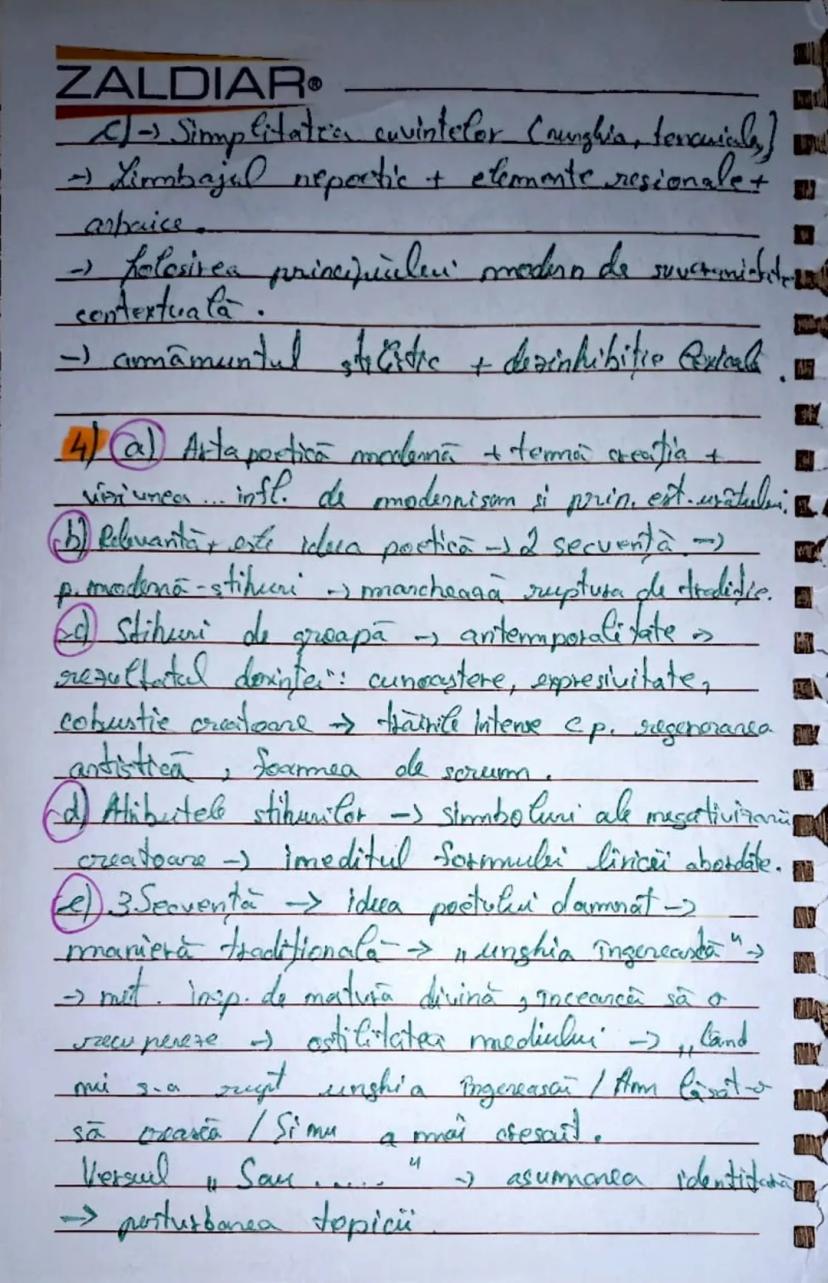 ZALDIAR®
c) → Simplitatea cuvintelor (unghia, tencuiala)
→ Limbajul nepoetic + elemente regionale +
arhaice.
→ folosirea principiului modern de suveranitate
contextuală.
→ amămuntul stilistic + dezinhibiție lexicală.
4) a) Arta poetică modernă + temă creația +
viziunea... infl. de modernism si prin. est. urâtului.
b) Relevantă, este ideea poetică → 2 secvență →
p. modernă - stihuri → marchează ruptura de tradiție.
c) Stihuri de groapă → antemporalitate →
rezultatul dorinței: cunoaștere, expresivitate,
cobustie creatoare → trăirile intense c.p. regenerarea
artistică, foamea de scrum.
d) Atibutele stihurilor → simboluri ale negativizării
creatoare → ineditul formului liricii abordate.
e) 3 Secvență → ideea poetului damnat →
manieră tradițională → "unghia îngerească" →
→ mit. insp. de natură divină, încearcă să o
recupereze → ostilitatea mediului → "Când
mi s-a rupt unghia îngerească / Am lăsat-o
să crească / Si nu a mai crescut.
Versul "Sau ....." → asumarea identitară
→ perturbarea topicii